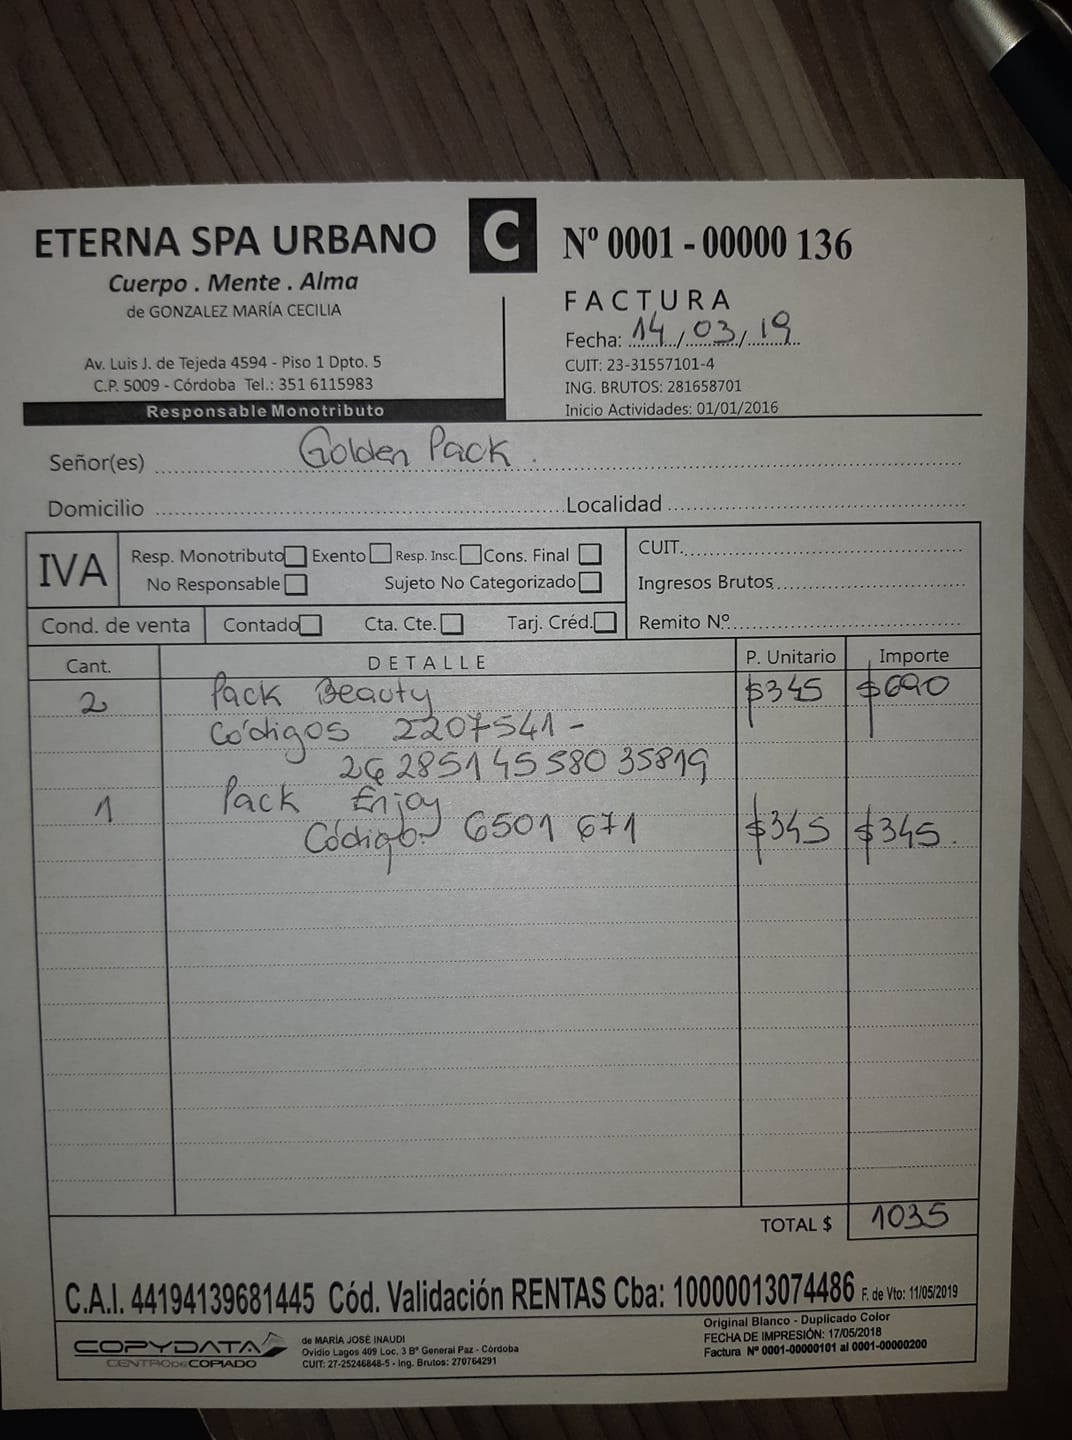 ETERNA SPA URBANO
Cuerpo . Mente . Alma
de GONZALEZ MARÍA CECILIA
Av. Luis J. de Tejeda 4594 - Piso 1 Dpto. 5
C.P. 5009 - Córdoba Tel.: 351 6115983
Responsable Monotributo
C
Nº 0001 - 00000 136
FACTURA
Fecha: 14/03/19
CUIT: 23-31557101-4
ING. BRUTOS: 281658701
Inicio Actividades: 01/01/2016
Señor(es) Golden Pack.
Domicilio Localidad
IVA Resp. Monotributo Exento Resp. Insc. Cons. Final
No Responsable Sujeto No Categorizado
CUIT.
Ingresos Brutos
Cond. de venta Contado Cta. Cte. Tarj. Créd. Remito Nº
Cant. DETALLE P. Unitario Importe
2 Pack Beauty $345 $690
Códigos 2207541 -
2628514558035819
1 Pack Enjoy
Código 6501671 $345 $345.
TOTAL $ 1035
C.A.I. 44194139681445 Cód. Validación RENTAS Cba: 10000013074486 F. de Vto: 11/05/2019
COPYDATA
CENTRO DE COPIADO
de MARÍA JOSÉ INAUDI
Ovidio Lagos 409 Loc. 3 Bº General Paz - Córdoba
CUIT: 27-25246848-5 - Ing. Brutos: 270764291
Original Blanco - Duplicado Color
FECHA DE IMPRESIÓN: 17/05/2018
Factura Nº 0001-00000101 al 0001-00000200